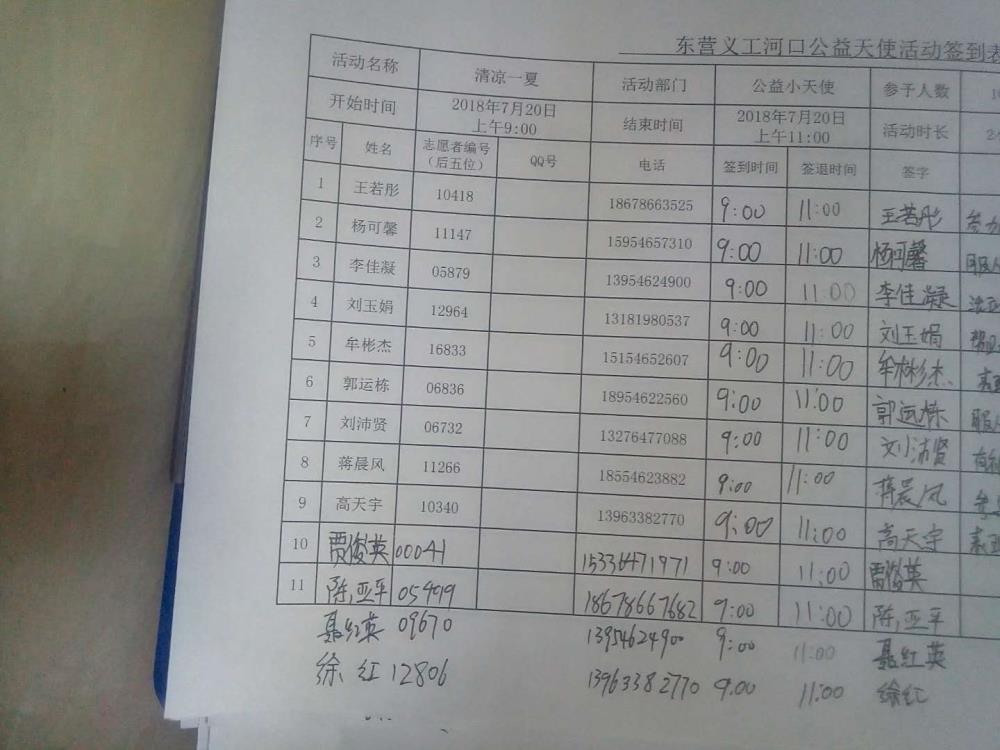 东营义工河口公益天使活动签到表
活动名称 清凉一夏 活动部门 公益小天使 参予人数
开始时间 2018年7月20日 上午9:00 结束时间 2018年7月20日 上午11:00 活动时长
序号 姓名 志愿者编号（后五位） QQ号 电话 签到时间 签退时间 签字
1 王若彤 10418 18678663525 9:00 11:00 王若彤
2 杨可馨 11147 15954657310 9:00 11:00 杨可馨
3 李佳凝 05879 13954624900 9:00 11:00 李佳凝
4 刘玉娟 12964 13181980537 9:00 11:00 刘玉娟
5 牟彬杰 16833 15154652607 9:00 11:00 牟彬杰
6 郭运栋 06836 18954622560 9:00 11:00 郭运栋
7 刘沛贤 06732 13276477088 9:00 11:00 刘沛贤
8 蒋晨风 11266 18554623882 9:00 11:00 蒋晨风
9 高天宇 10340 13963382770 9:00 11:00 高天宇
10 贾俊英 00041 15336471971 9:00 11:00 贾俊英
11 陈亚平 05409 18678667682 9:00 11:00 陈亚平
聂红英 09670 13954624900 9:00 11:00 聂红英
徐红 12806 13963382770 9:00 11:00 徐红